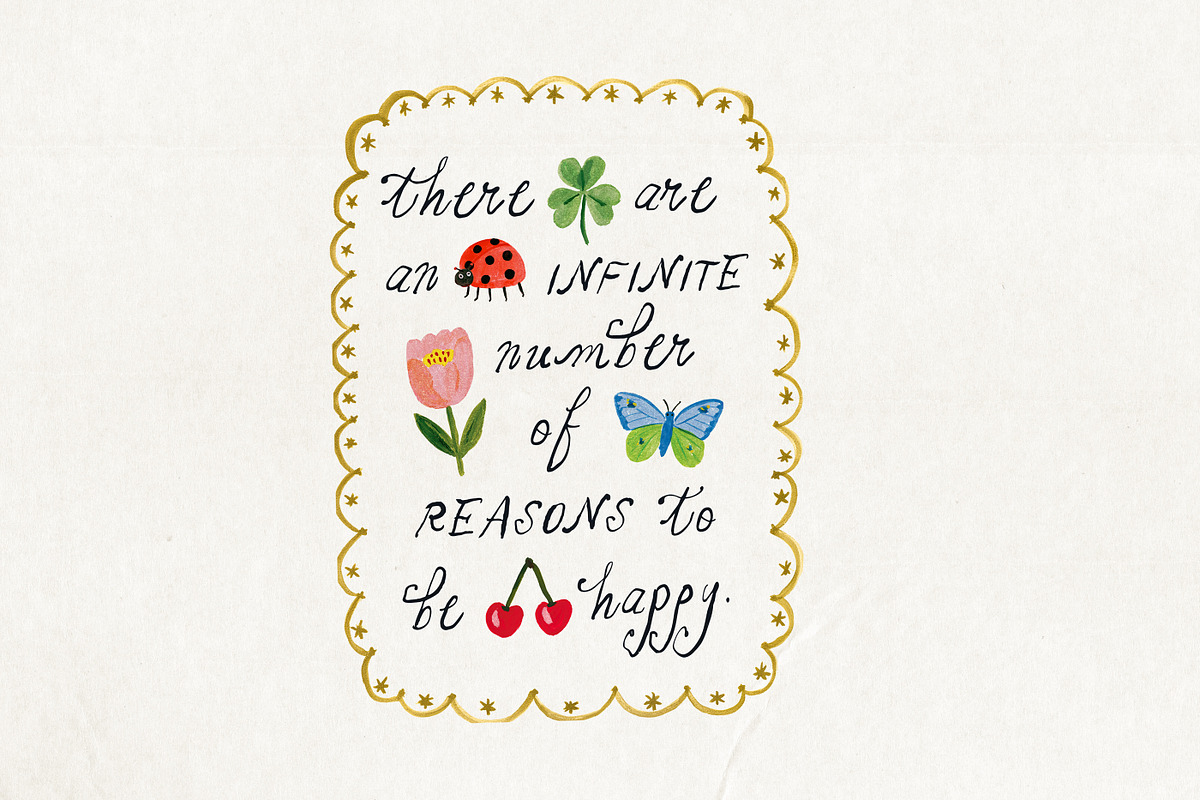 there are
an INFINITE
number
of
REASONS to
be happy.